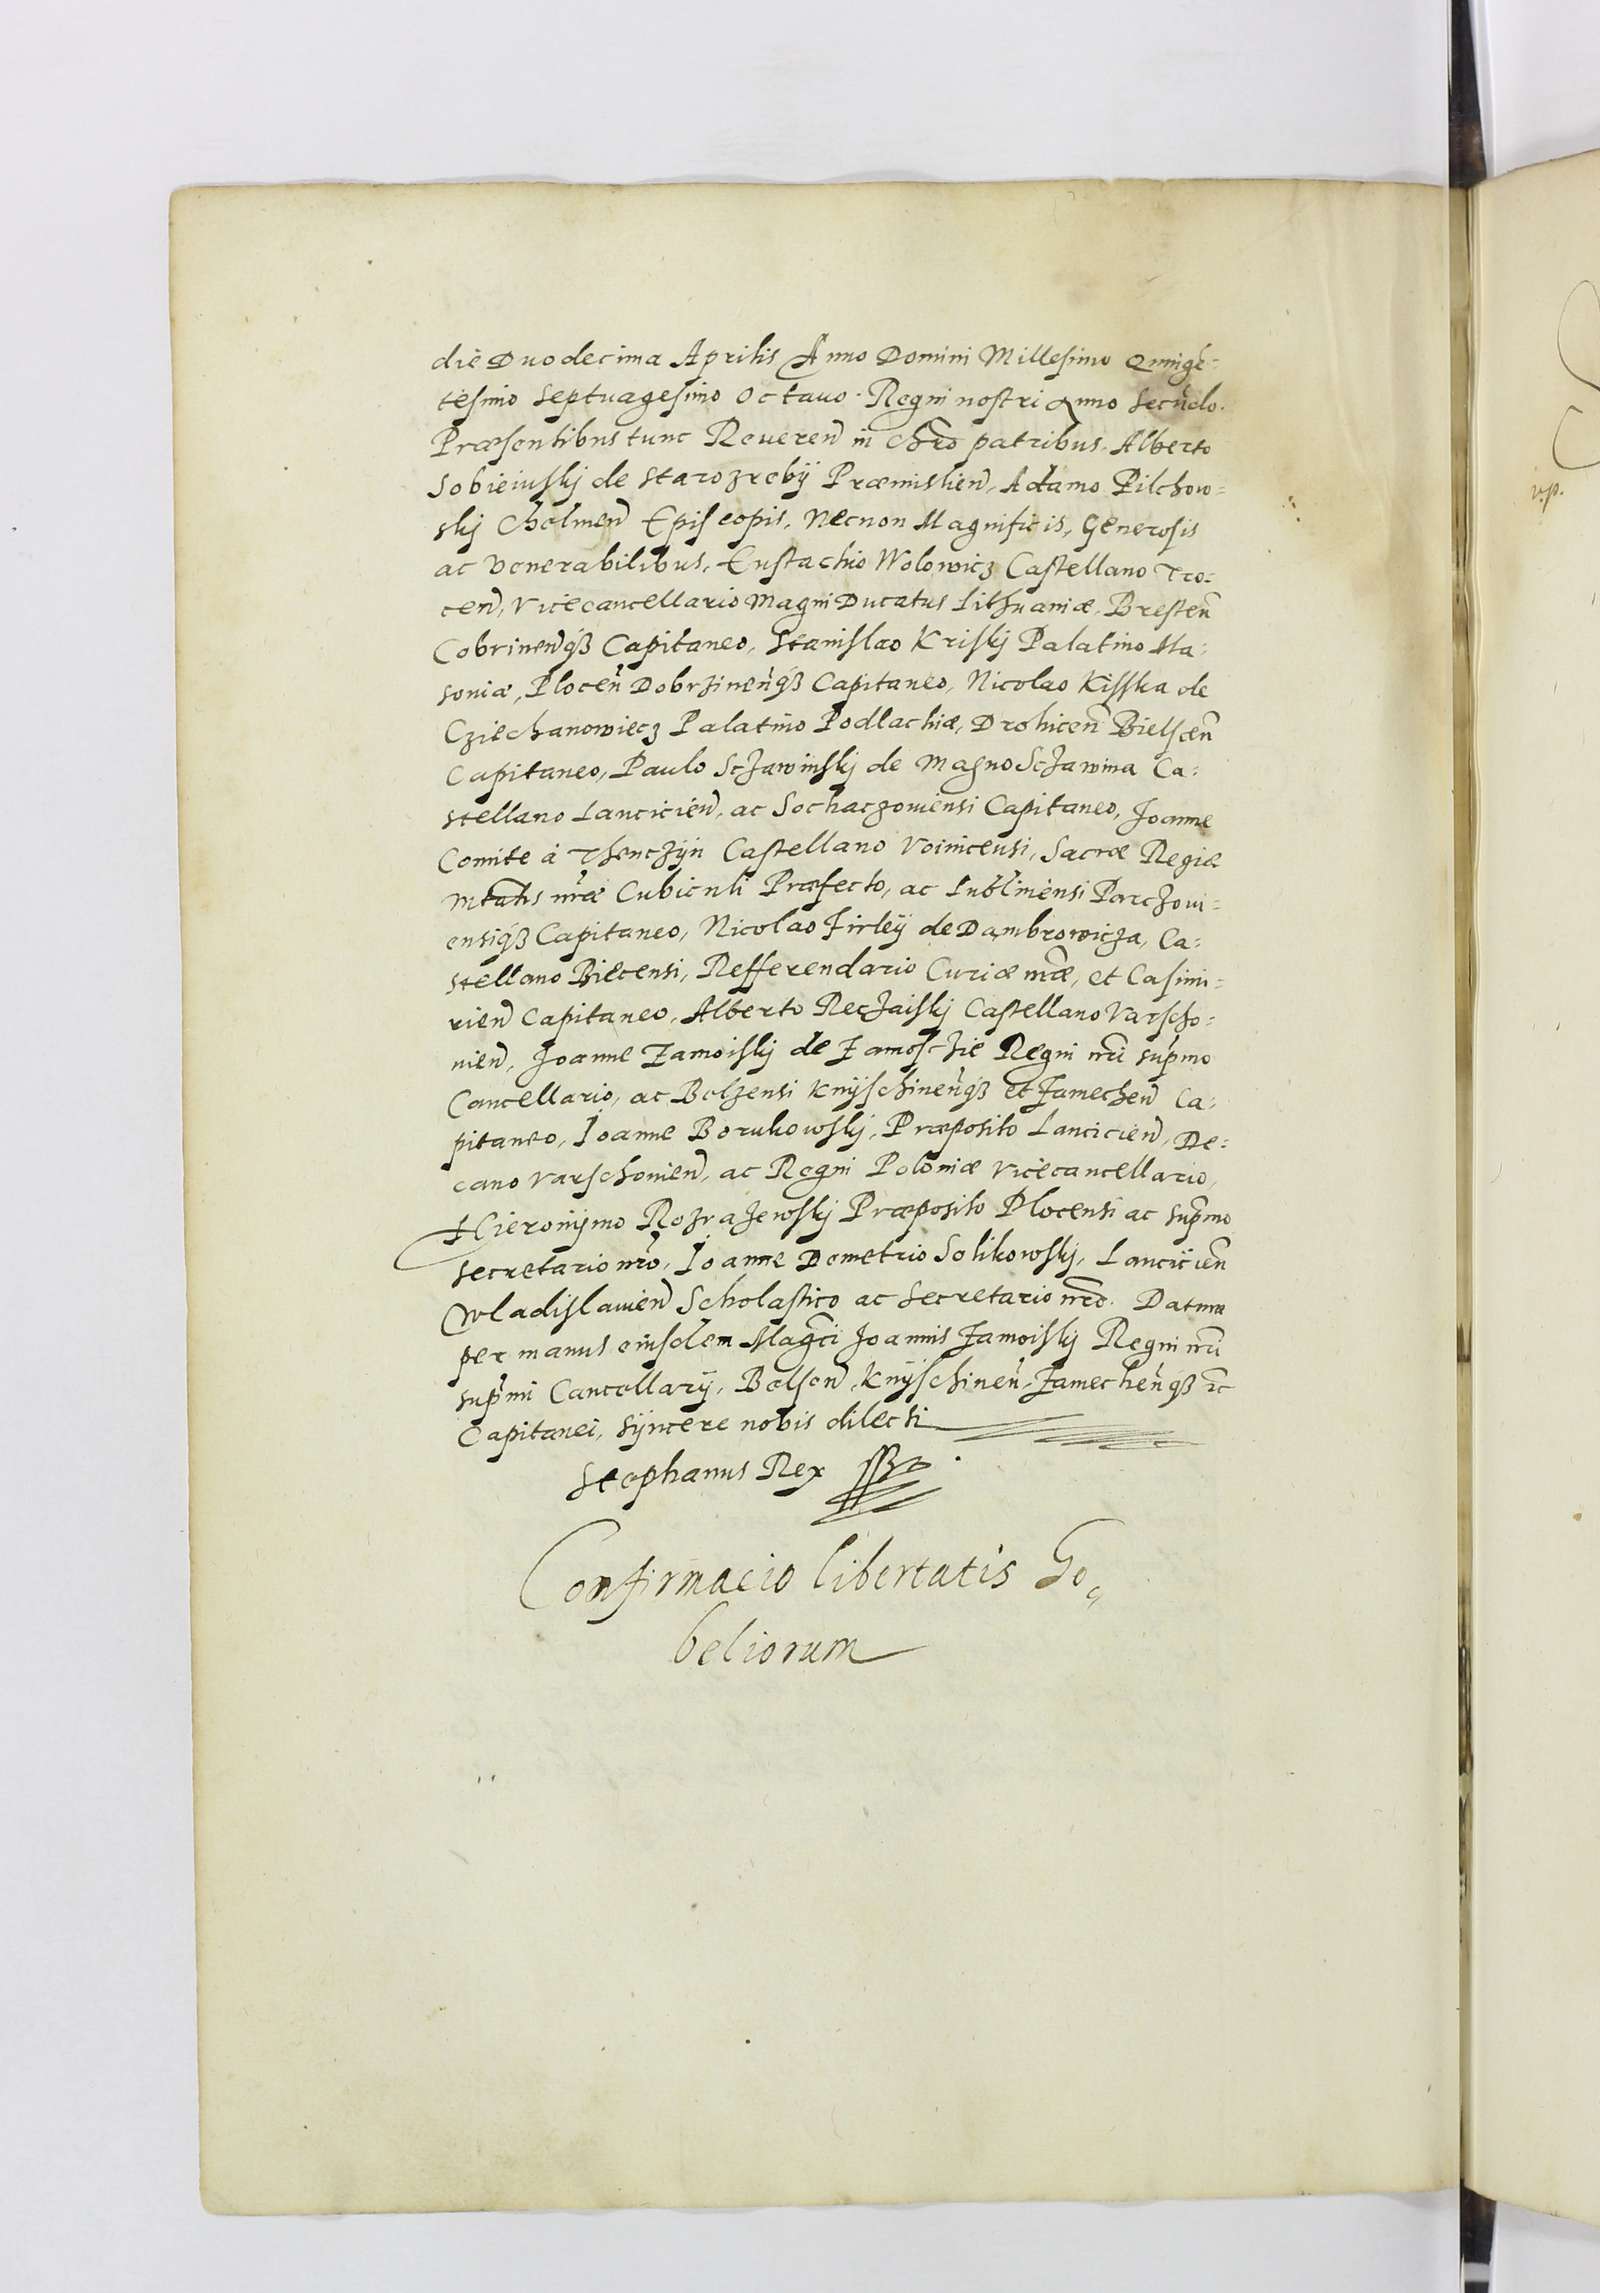 die Duodecima Aprilis Anno Domini Millesimo Quinge͂=
tesimo Septuagesimo Octauo. Regni nostri Anno Secundo.
Præsentibus tunc Reueren͂ in Chr͂o patribus. Alberto
Sobieiuskÿ de Starozrebÿ Præmislien͂, Adamo Pilchow=
skÿ Chelmen͂ Episcopis, Necnon Magnificis, Generosis
ac Venerabilibus, Eustachio Wolowicz Castellano Tro=
cen͂, Vicecancellario Magni Ducatus Lithuaniæ, Bresten͂
Cobrinen͂qꝫ Capitaneo, Stanislao Kriskÿ Palatino Ma=
soniæ, Plocen͂ Dobrzinen͂qꝫ Capitaneo, Nicolao Kisska de
Cziechanowiecz Palatino Podlachiæ, Drohicen͂ Bielscen͂
Capitaneo, Paulo Sczawinskÿ de Magno Sczawina Ca=
stellano Lancicien͂, ac Sochaczouiensi Capitaneo, Joanne
Comite à Thenczÿn Castellano Voinicensi, Sacræ Regiæ
Mtatis nr͂æ Cubiculi Præfecto, ac Lublinensi Parczoui=
ensiqꝫ Capitaneo, Nicolao Firleÿ de Dambrowicza, Ca=
stellano Biecensi, Refferendario Curiæ nr͂æ, et Casimi=
rien͂ Capitaneo, Alberto Reczaiskÿ Castellano Varscho=
uien͂, Joanne Zamoiskÿ de Zamosczie Regni nr͂i sup͂mo
Cancellario, ac Belzensi Knÿschinen͂qꝫ et Zamechen͂ Ca=
pitaneo, Joanne Borukowskÿ, Præposito Lancicien͂, De=
cano Varschouien͂, ac Regni Poloniæ Vicecancellario,
Hieronÿmo Rozrazewskÿ Præposito Plocensi ac sup͂mo
Secretario nr͂o, Joanne Demetrio Solikowskÿ, Lancicien͂
Wladislauien͂ Scholastico ac Secretario nr͂o. Datum
per manus eiusdem Mag͂ci Joannis Zamoiskÿ Regni nr͂i
sup͂mi Cancellarÿ, Belsen͂, Knÿschinen͂, Zamechen͂qꝫ ꝛc
Capitanei, sÿncere nobis dilecti
Stephanus Rex
Confirmacio libertatis Go„
beliorum
v.p.